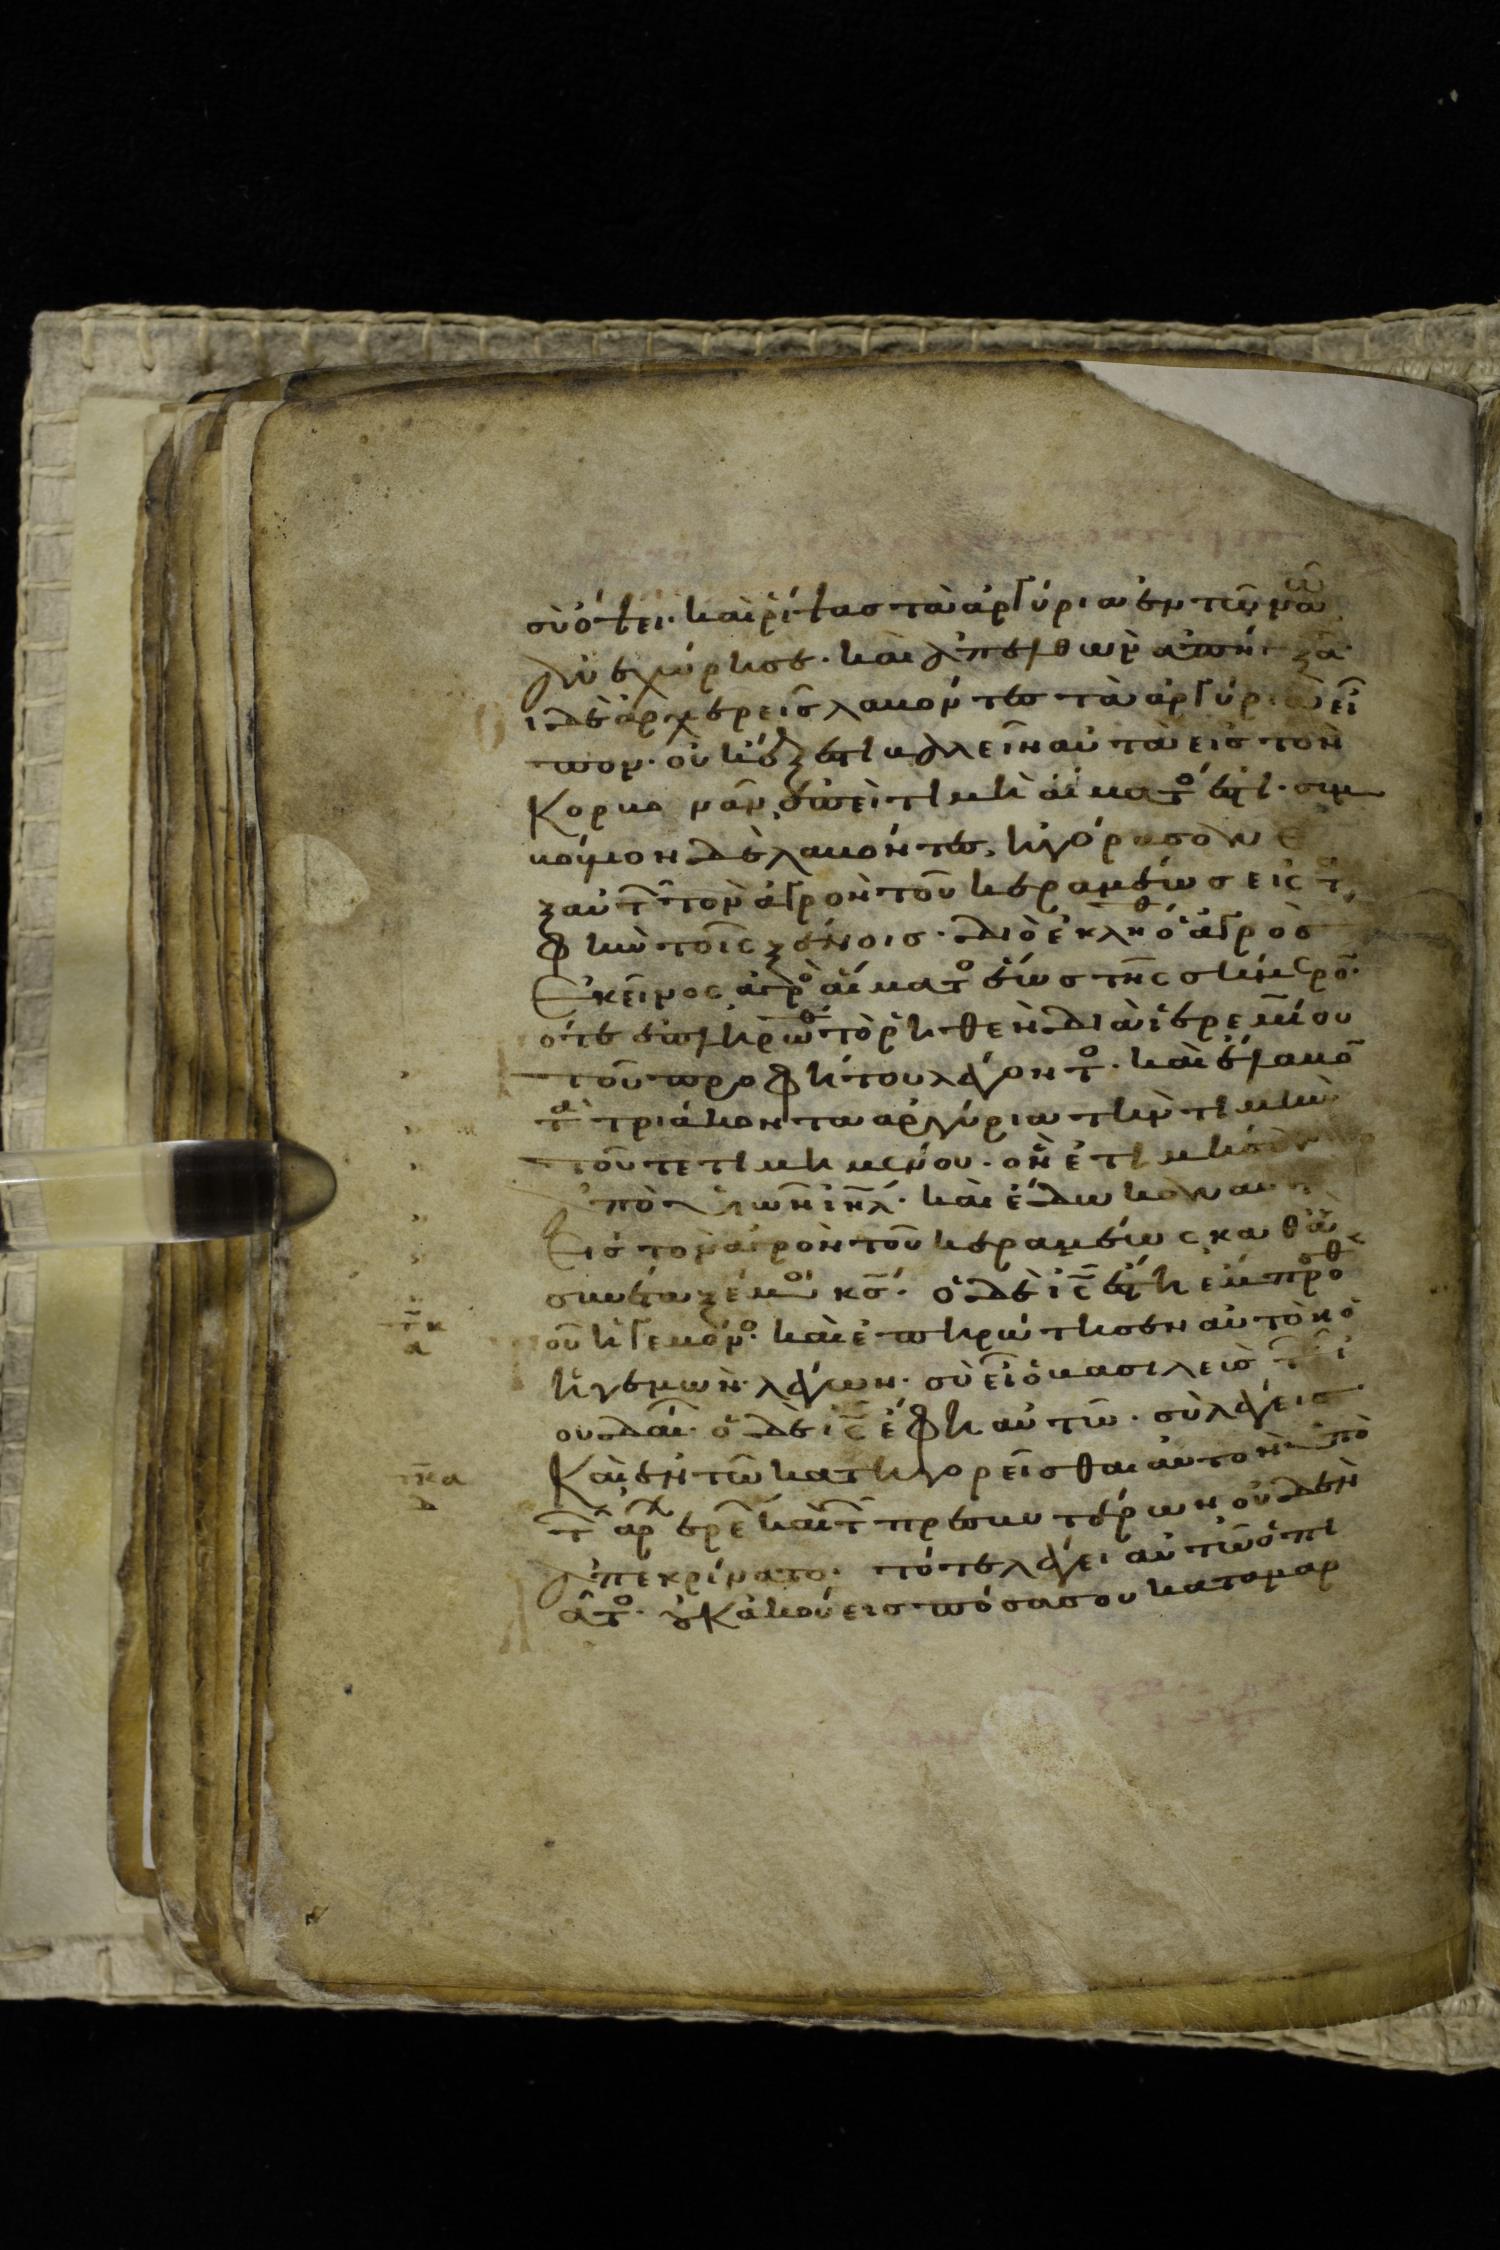 σὺ ὄψει· καὶ ῥίψας τὰ ἀργύρια ἐν τῷ ναῷ
ἀνεχώρησε· καὶ ἀπελθὼν ἀπήγξα
ι δὲ ἀρχιερεῖς λαβόντες τὰ ἀργύρια εἶ
πον· οὐκ ἔξεστι βαλεῖν αὐτὰ εἰς τὸν
κορβανᾶν, ἐπεὶ τιμὴ αἵματο ἐστι· συμ
βούλιον δὲ λαβόντες, ἠγόρασαν ἐ
ξ αὐτ τὸν ἀγρὸν τοῦ κεραμέως εἰς τ
φὴν τοῖς ξένοις· διὸ ἐκλήθ ὁ ἀγρὸς
ἐκεῖνος ἀγρο αἵματο ἕως τῆς σήμερο·
ότε ἐπληρώθ τὸ ῥηθὲν διὰ ἱερεμίου
τοῦ προφήτου λέγοντο· καὶ ἔλαβο
τα τριάκοντα αργύρια τὴν τιμὴν
τοῦ τετιμημένου· ὃν ἐτιμήσαν
ἀπὸ υἱῶν ιηλ· καὶ ἔδωκαν αυ
εἰς τὸν ἀγρὸν τοῦ κεραμέως, καθὰ
συνέταξέ μοι κσ· ὁ δὲ ις ἔστη ἔμπροσθ
οῦ ἡγεμόνο· καὶ ἐπηρώτησεν αὐτὸν ὁ
ἡγεμὼν λέγων· σὺ εἶ ὁ βασιλεὺς τ ἰ
ουδαί· ὁ δὲ ις ἔφη αὐτῶ· σὺ λέγεις
καὶ ἐν τῶ κατηγορεῖσθαι αὐτὸν ὑπὸ
τ αρχερε καὶ τ πρεσβυτέρων οὐδὲν
ἀπεκρίνατο· τότε λέγει αὐτῶ ὁ πι
ατο· οὐκ ἀκούεις πόσα σου καταμαρ
τκ
α
τκα
δ